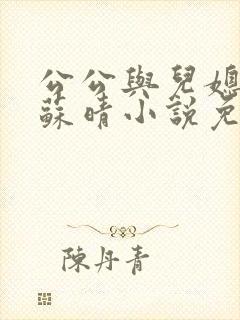 公公與兒媳
蘇晴小說免
陳丹青